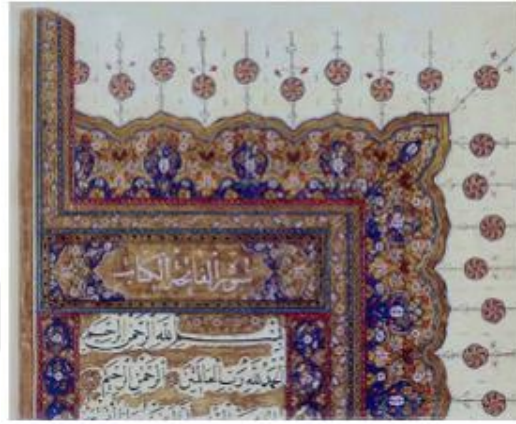 سورة الفاتحة الكتاب
بسم الله الرحمن الرحيم
الحمد لله رب العالمين الرحمن الرحيم